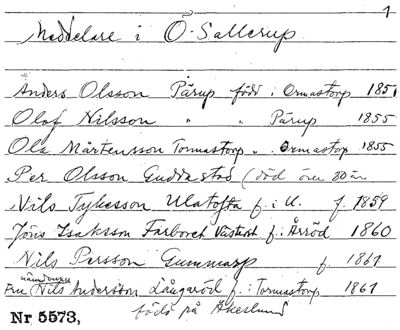 1
Meddelare i Ö. Sallerup
Anders Olsson Pärup född i Ormastorp 1851
Olof Nilsson " " Pärup 1855
Ola Mårtensson Tormastorp " . Ormastorp 1855
Per Olsson Guddastad (död över 80 år
Nils Tykesson Ulatofta f. i U. f. 1859
Jöns Isaksson Fårboret Västerst f. i Årröd 1860
Nils Persson Gummarp f. 1861
nämndeman
Fru (Nils Andersson Långaröd f. i Tormastorp 1861
född på Åkeslund
Nr 5573,